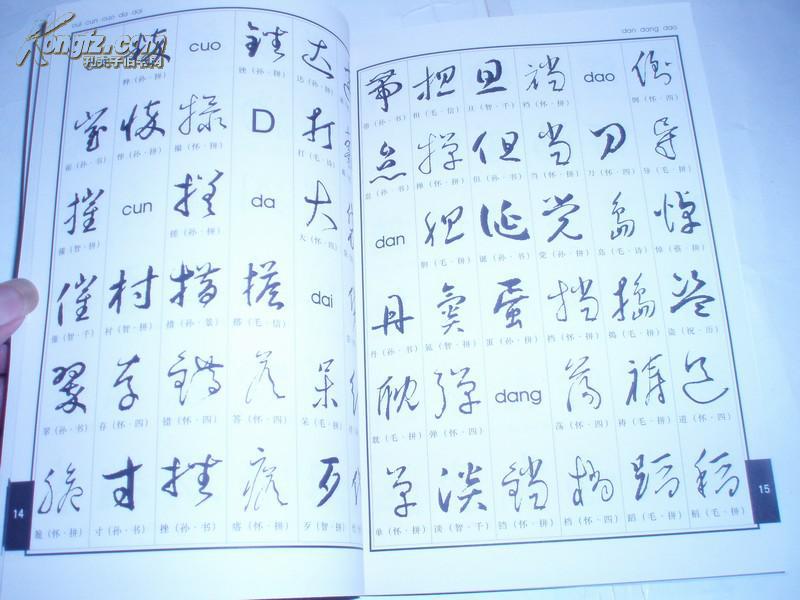 Kongfz.com
cui cun cuo da dai
崔（孙·书）
摧（智·拼）
催（智·千）
翠（孙·书）
脆（怀·拼）
粹（孙·拼）
悴（孙·拼）
cun
村（智·拼）
存（怀·四）
寸（孙·书）
cuo
撮（怀·拼）
搓（孙·拼）
措（孙·景）
错（怀·四）
挫（孙·书）
锉（孙·拼）
D
da
搭（毛·信）
答（怀·四）
瘩（怀·拼）
达（孙·拼）
打（毛·诗）
大（怀·四）
dai
呆（毛·拼）
歹（孙·拼）
14
dan dang dao
带（孙·书）
怠（孙·书）
dan
丹（孙·书）
耽（毛·拼）
单（怀·拼）
担（毛·信）
掸（怀·拼）
胆（毛·拼）
氮（智·拼）
弹（怀·四）
淡（智·千）
旦（智·千）
但（孙·书）
诞（孙·书）
蛋（孙·拼）
dang
铛（怀·拼）
裆（怀·拼）
当（怀·拼）
党（孙·拼）
挡（怀·拼）
荡（怀·四）
档（怀·四）
dao
刀（怀·四）
岛（毛·诗）
捣（毛·拼）
祷（毛·拼）
蹈（毛·拼）
倒（怀·四）
导（毛·拼）
悼（蔡·拼）
盗（祝·历）
道（怀·四）
稻（毛·拼）
15